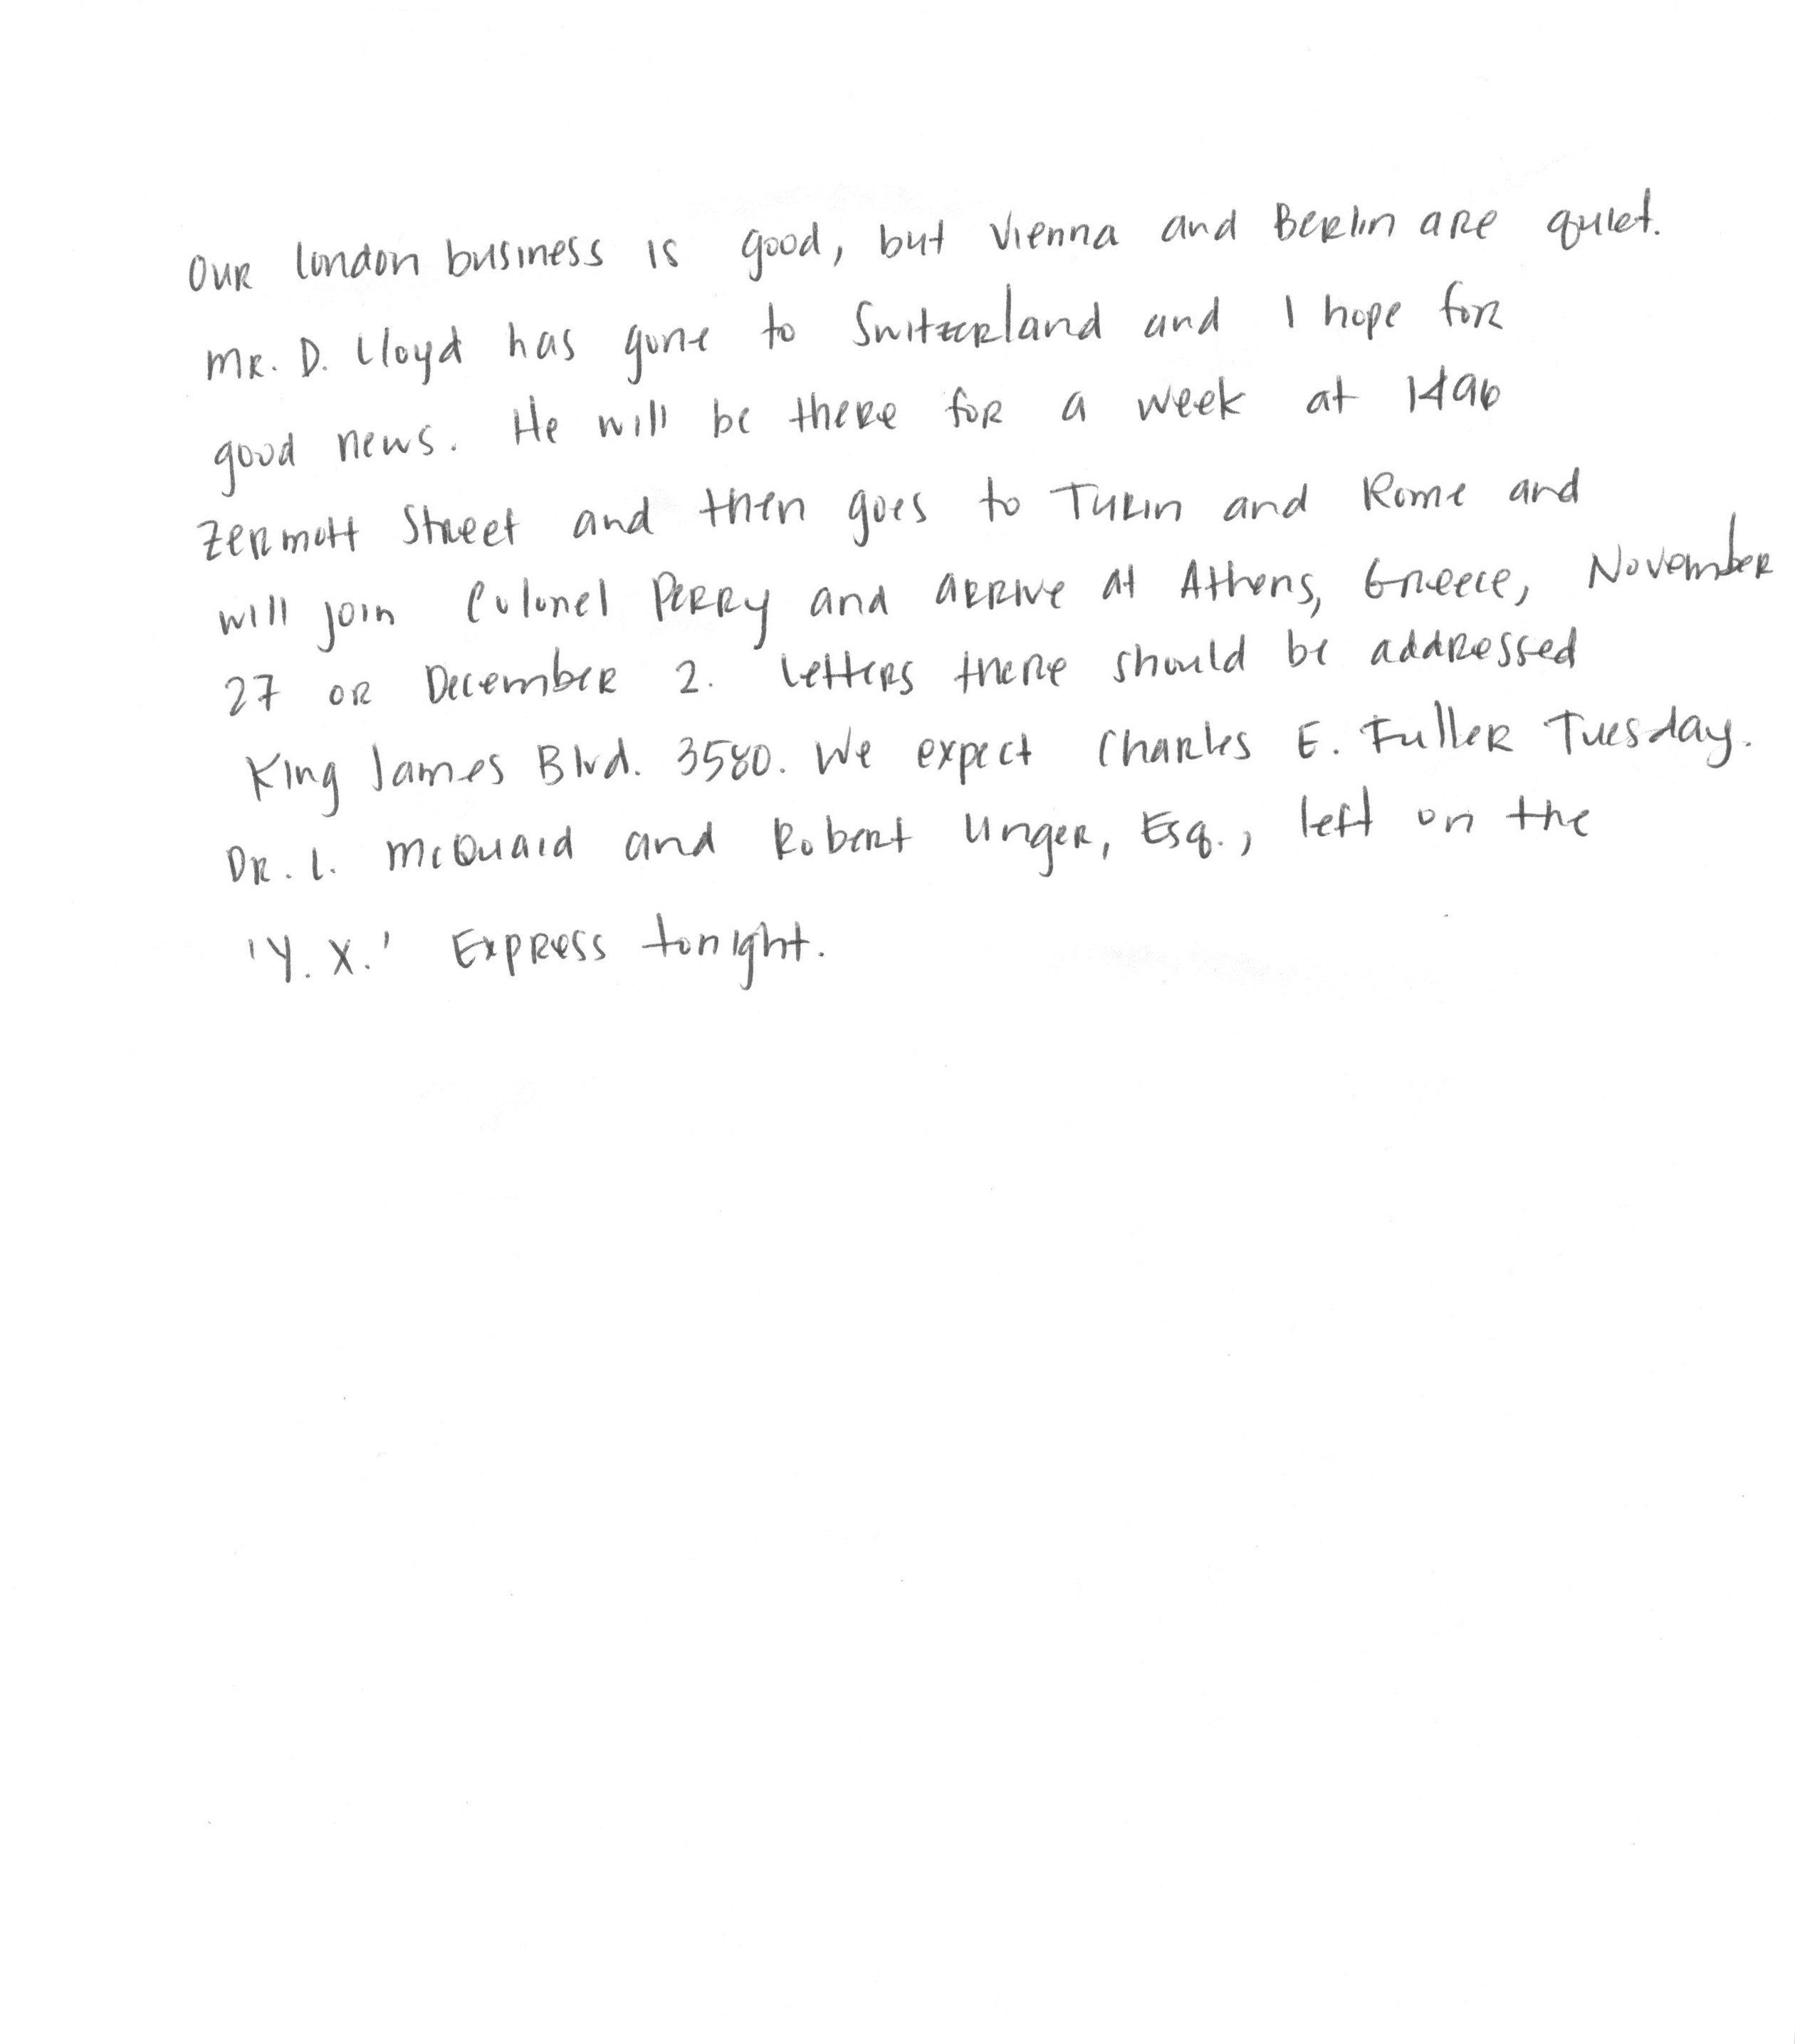 Our London business is good, but Vienna and Berlin are quiet.
Mr. D. Lloyd has gone to Switzerland and I hope for
good news. He will be there for a week at 1496
Zermott Street and then goes to Turin and Rome and
will join Colonel Perry and arrive at Athens, Greece, November
27 or December 2. Letters there should be addressed
King James Blvd. 3580. We expect Charles E. Fuller Tuesday.
Dr. L. McQuaid and Robert Unger, Esq., left on the
'Y. X.' Express tonight.